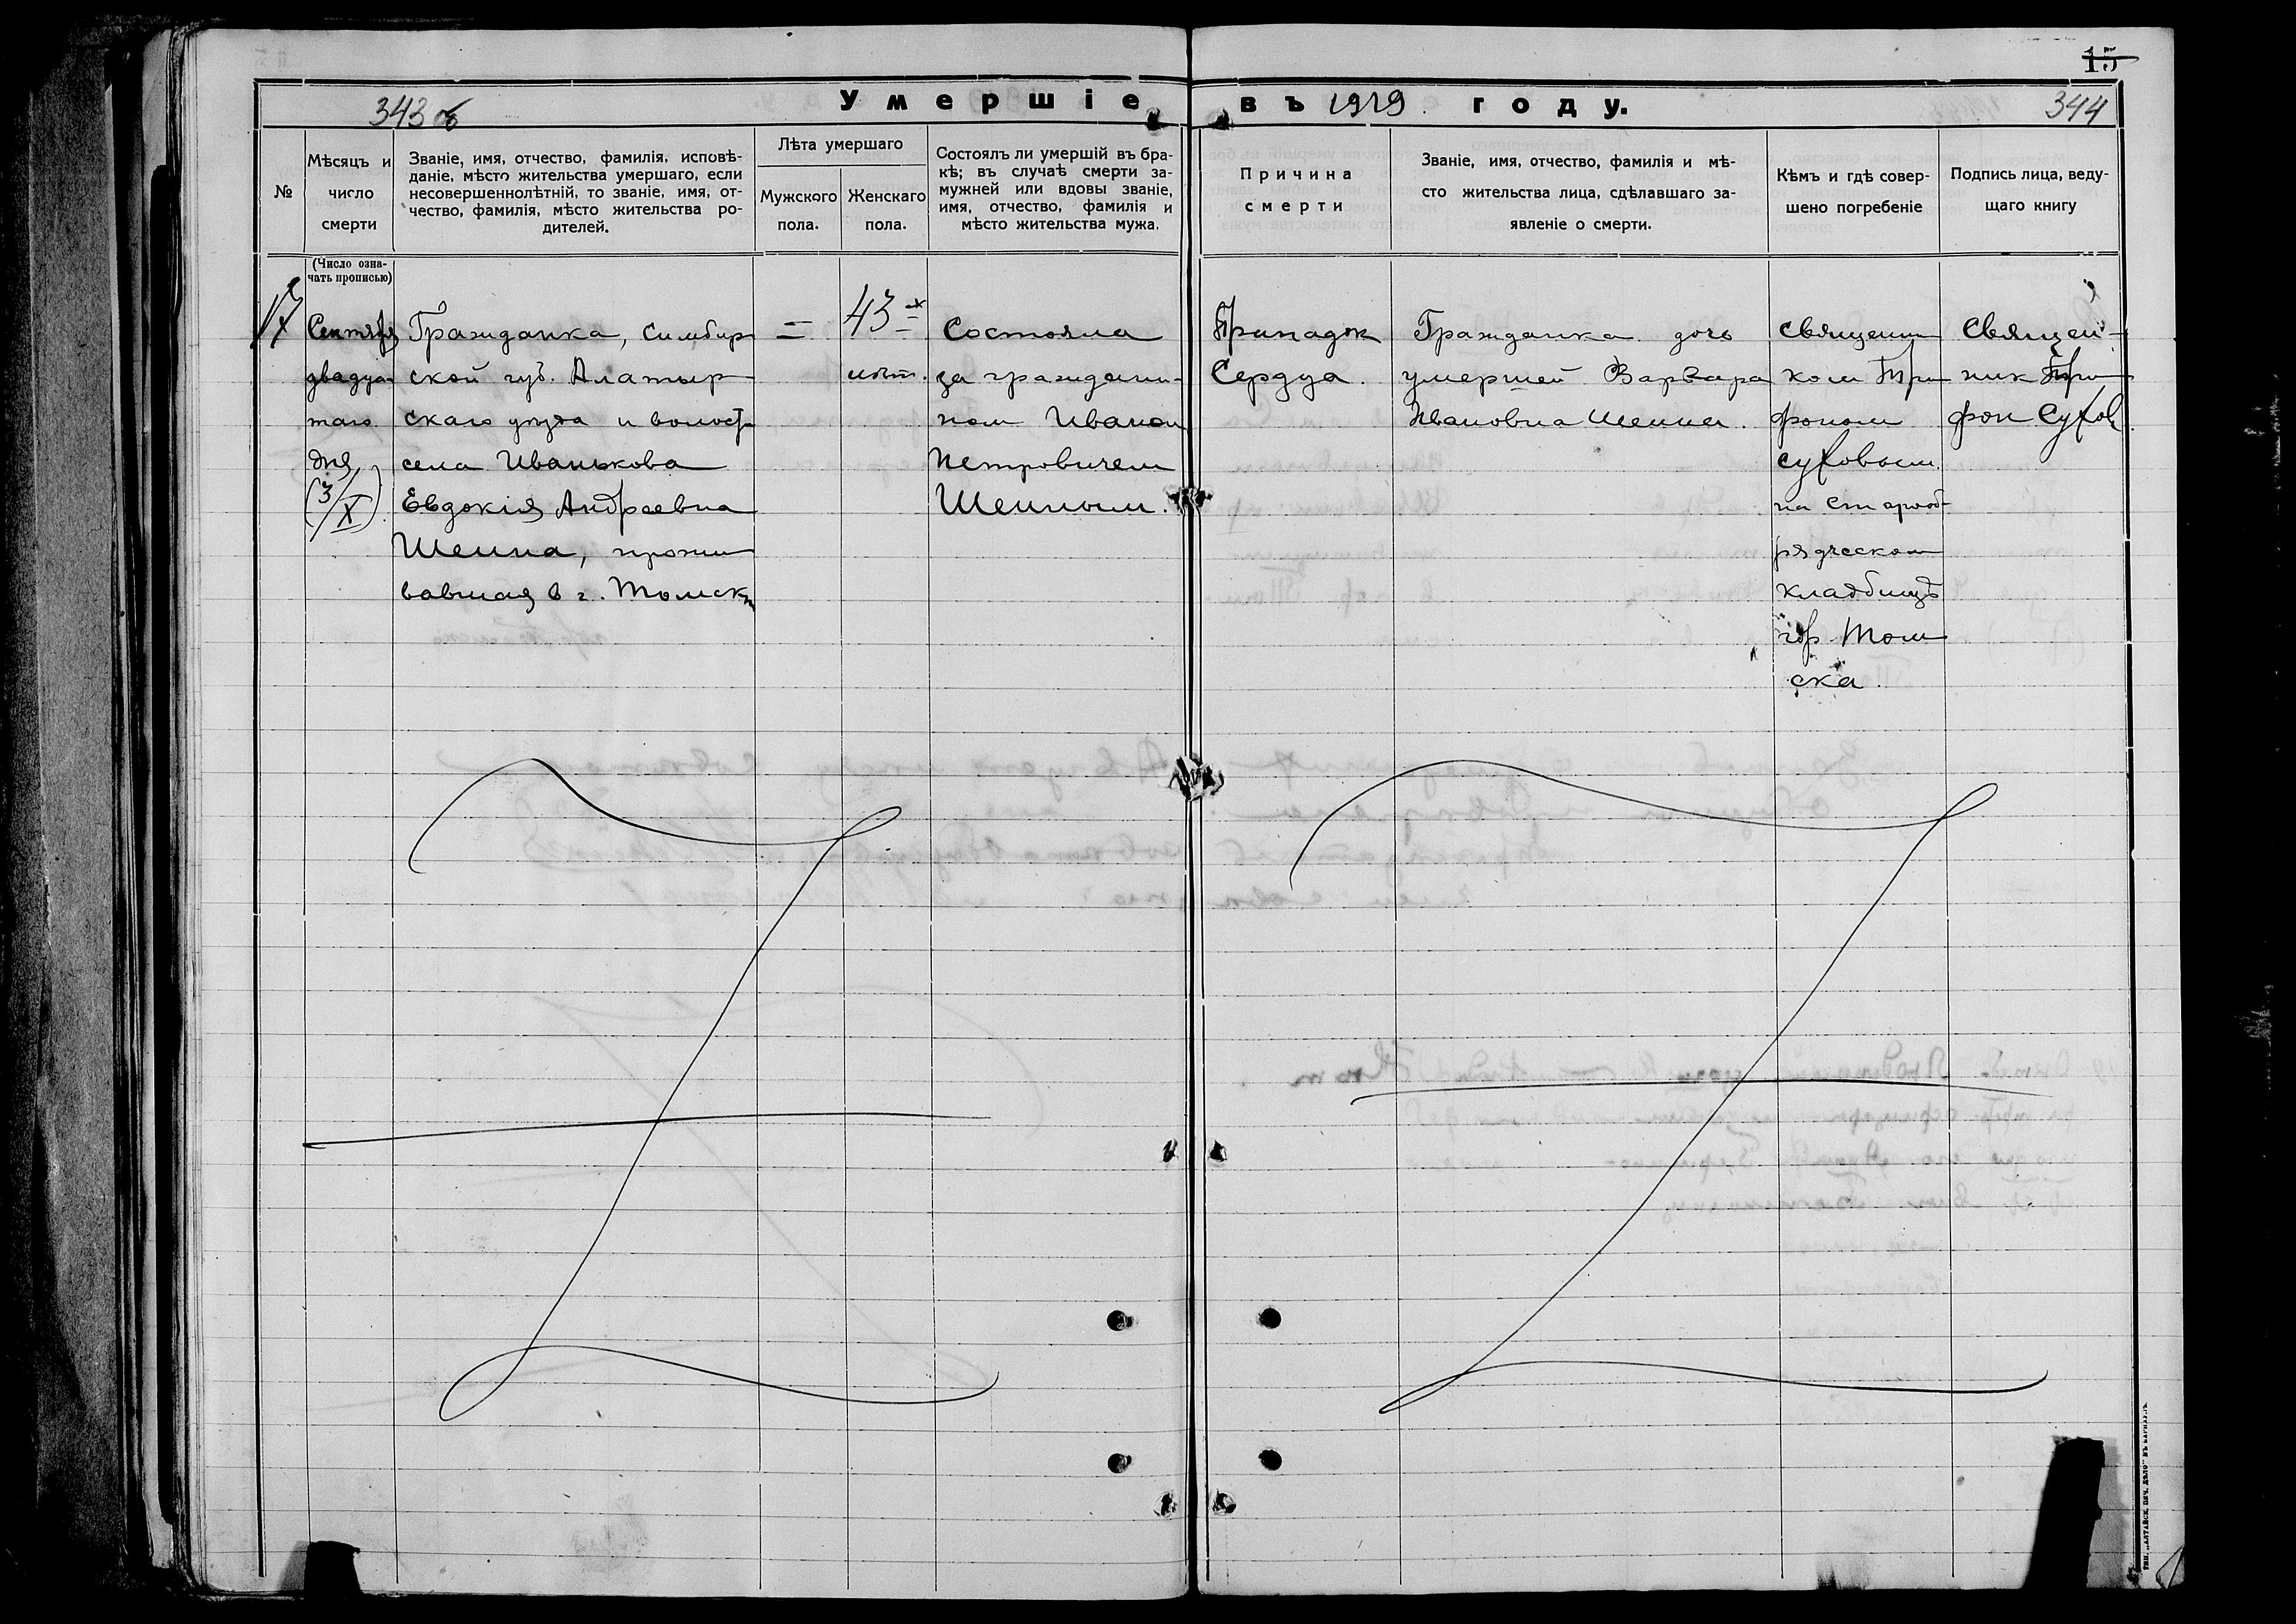 15
343 об
Умершіе въ 1919 году.
344
№
Мѣсяцъ и
число
смерти
Званіе, имя, отчество, фамилія, исповѣ-
даніе, мѣсто жительства умершаго, если
несовершеннолѣтній, то званіе, имя, от-
чество, фамилія, мѣсто жительства ро-
дителей.
Лѣта умершаго
Мужского
пола.
Женскаго
пола.
Состоялъ ли умершій въ бра-
кѣ; въ случаѣ смерти за-
мужней или вдовы званіе,
имя, отчество, фамилія и
мѣсто жительства мужа.
Причина
смерти
Званіе, имя, отчество, фамилія и мѣ-
сто жительства лица, сдѣлавшаго за-
явленіе о смерти.
Кѣмъ и гдѣ совер-
шено погребеніе
Подпись лица, веду-
щаго книгу
(Число озна-
чать прописью)
Сентября
двадца-
таго
дня
(3/X).
Гражданка, Симбир
ской губ. Алатыр
скаго уѣзда и волости
села Иванькова
Евдокія Андреевна
Шеина, прожи
вавшая в г. Томскѣ
=
43х
лѣт.
Состояла
за граждани-
ном Иваном
Петровичем
Шеиным.
Припадок
Сердца.
Гражданка дочь
умершей Варвара
Ивановна Шеина.
Священни
ком Три
фоном
Суховым
на старооб-
рядческом
кладбищѣ
гор Том
ска.
Священ-
ник Три
фон Сухов
ТИП. „АЛТАЙСК. ПЕЧ. ДѢЛО“ ВЪ БАРНАУЛѢ.